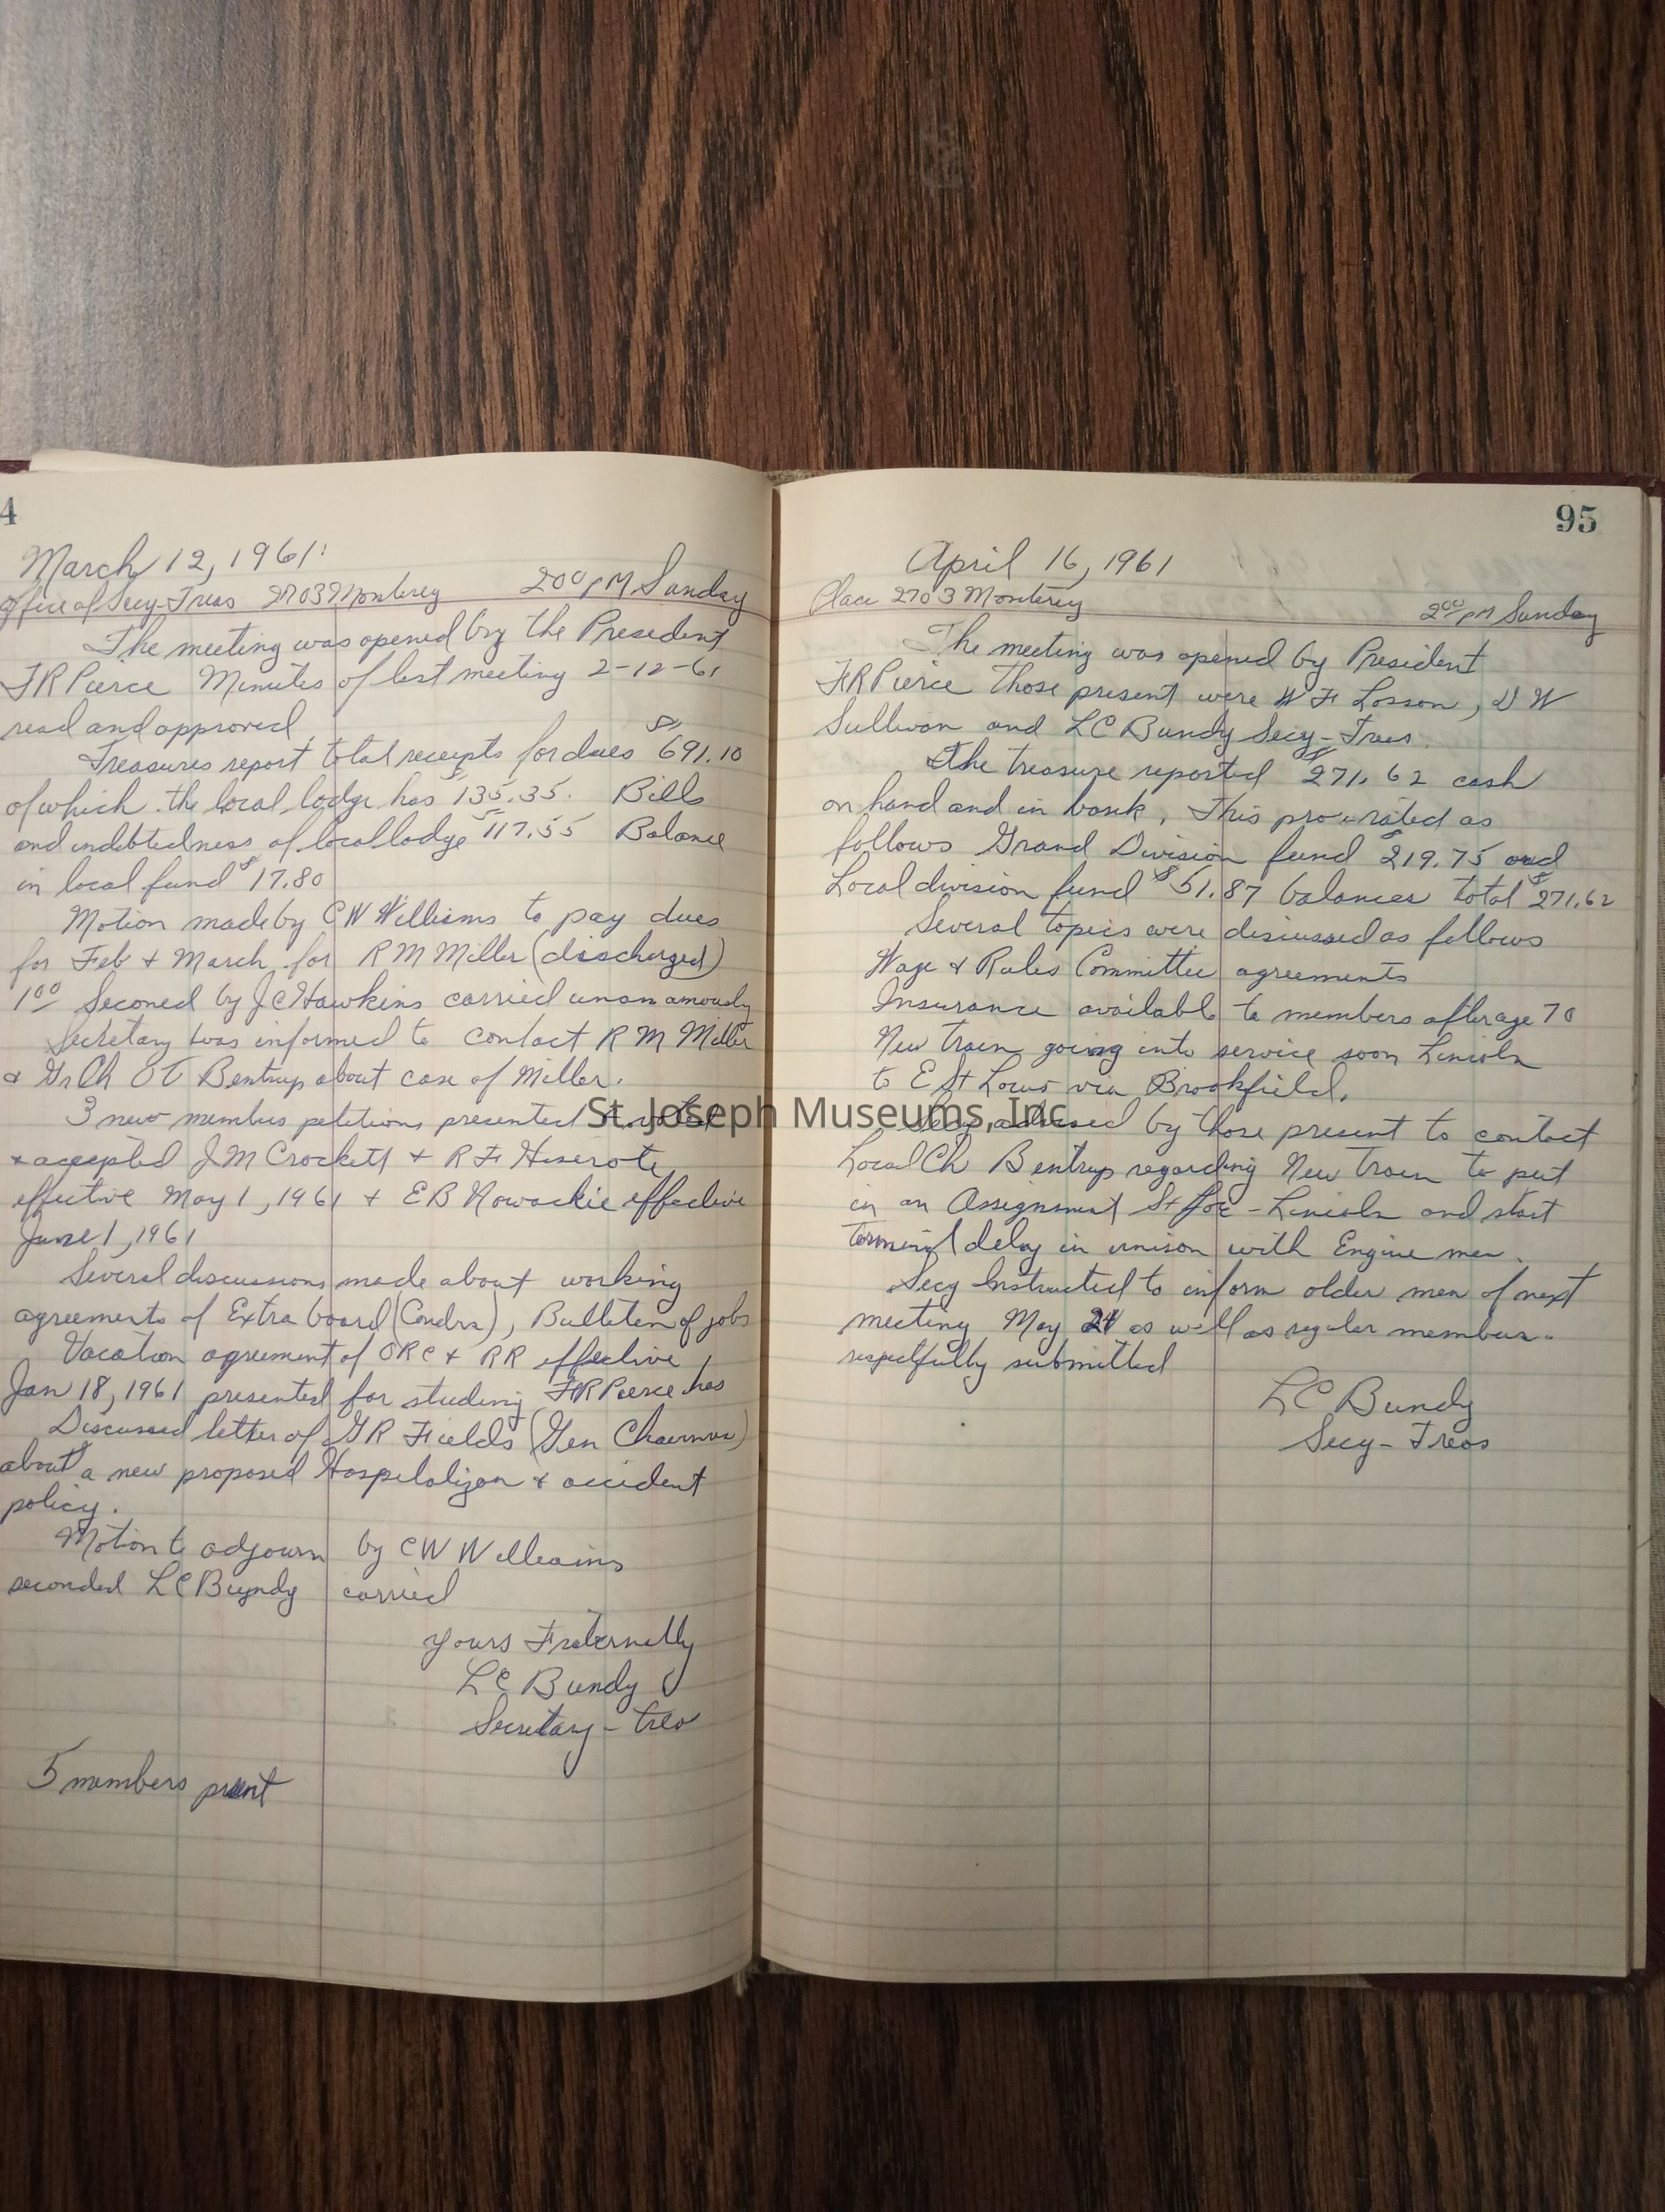 4
March 12, 1961
Office of Secy-Treas 2703 Monterey 2 00 PM Sunday
The meeting was opened by the President
FR Pierce Minutes of last meeting 2-12-61
read and approved
Treasures report total receipts for dues $691.10
of which the local lodge has $135.35. Bills
and indebtedness of local lodge $117.55 Balance
in local fund $17.80
Motion made by CW Williams to pay dues
for Feb & March for RM Miller (discharged)
1 00 Seconed by JC Hawkins carried unanamously
Secretary was informed to contact RM Miller
& Gr Ch OT Bentrup about case of Miller.
3 new members petitions presented
& accepted JM Crockett & RF Hiserote
effective May 1, 1961 & EB Nowackie effective
June 1, 1961
Several discussions made about working
agreements of Extra board (Condrs), Bulleten of jobs
Vacation agreement of ORC & RR effective
Jan 18, 1961 presented for studing FR Pierce has
Discussed letter of GR Fields (Gen Chairman)
about a new proposed Hospitalizon & accident
policy.
Motion to adjourn by CW Williams
seconded LC Bundy carried
Yours Fraternally
LC Bundy
Secretary - Treas
5 members present
95
April 16, 1961
Place 2703 Monterey 2 00 PM Sunday
The meeting was opened by President
FR Pierce Those present were WF Losson, DW
Sullivan and LC Bundy Secy-Treas.
The treasure reported $271.62 cash
on hand and in bank, This pro-rated as
follows Grand Division fund $219.75 and
Local division fund $51.87 balances total $271.62
Several topics were discussed as follows
Wage & Rules Committee agreements
Insurance available to members after age 70
New train going into service soon Lincoln
to E St Louis via Brookfield.
Secy advised by those present to contact
Local Ch Bentrup regarding New train to put
in an Assignment St Joe-Lincoln and start
terminal delay in unison with Engine men.
Secy Instructed to inform older men of next
meeting May 21 as well as regular members.
respectfully submitted
LC Bundy
Secy-Treas
St. Joseph Museums, Inc.